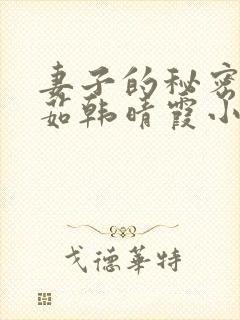 妻子的秘密
茹韩晴霞小
戈德華特